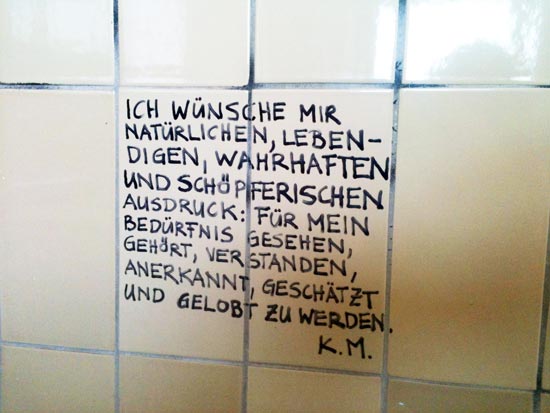 ICH WÜNSCHE MIR
NATÜRLICHEN, LEBEN-
DIGEN, WAHRHAFTEN
UND SCHÖPFERISCHEN
AUSDRUCK: FÜR MEIN
BEDÜRFNIS GESEHEN,
GEHÖRT, VERSTANDEN,
ANERKANNT, GESCHÄTZT
UND GELOBT ZU WERDEN.
K.M.